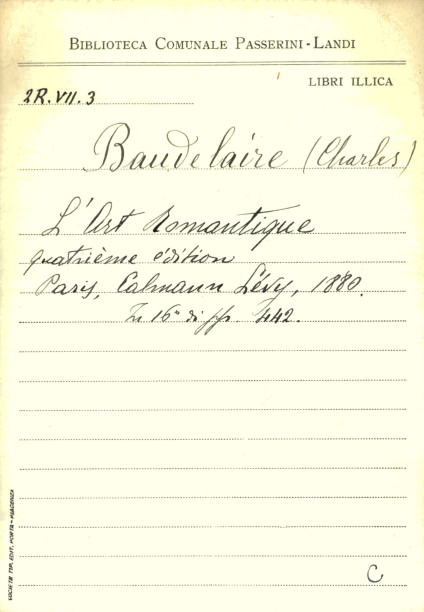 BIBLIOTECA COMUNALE PASSERINI-LANDI
LIBRI ILLICA
2R.VII.3
Baudelaire (Charles)
L'Art Romantique
quatrième édition
Paris, Calmann Lévy, 1880.
In 16° di pp. 442.
C
SOCIETÀ TIP. EDIT. PORTA - PIACENZA